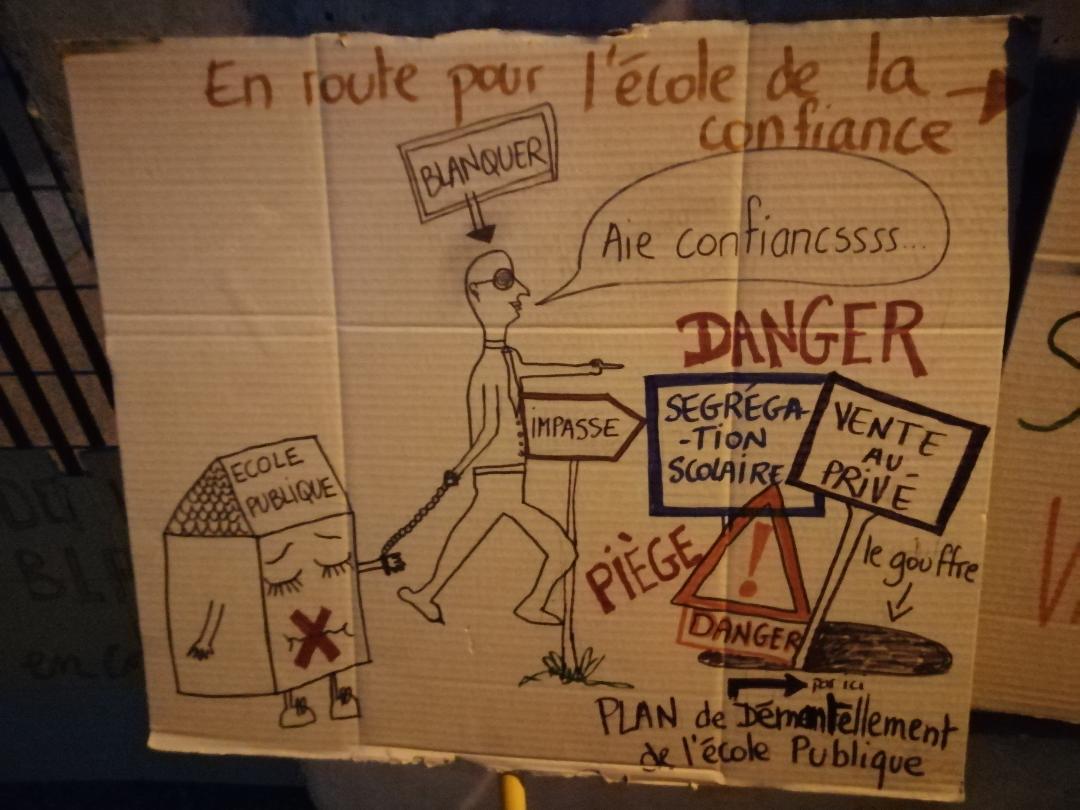 En route pour l'école de la
confiance
BLANQUER
Aie confiancssss...
DANGER
IMPASSE
SEGRÉGA-
-TION
SCOLAIRE
VENTE
AU
PRIVÉ
ECOLE
PUBLIQUE
PIÈGE
!
DANGER
le gouffre
par ici
PLAN de Démantellement
de l'école Publique